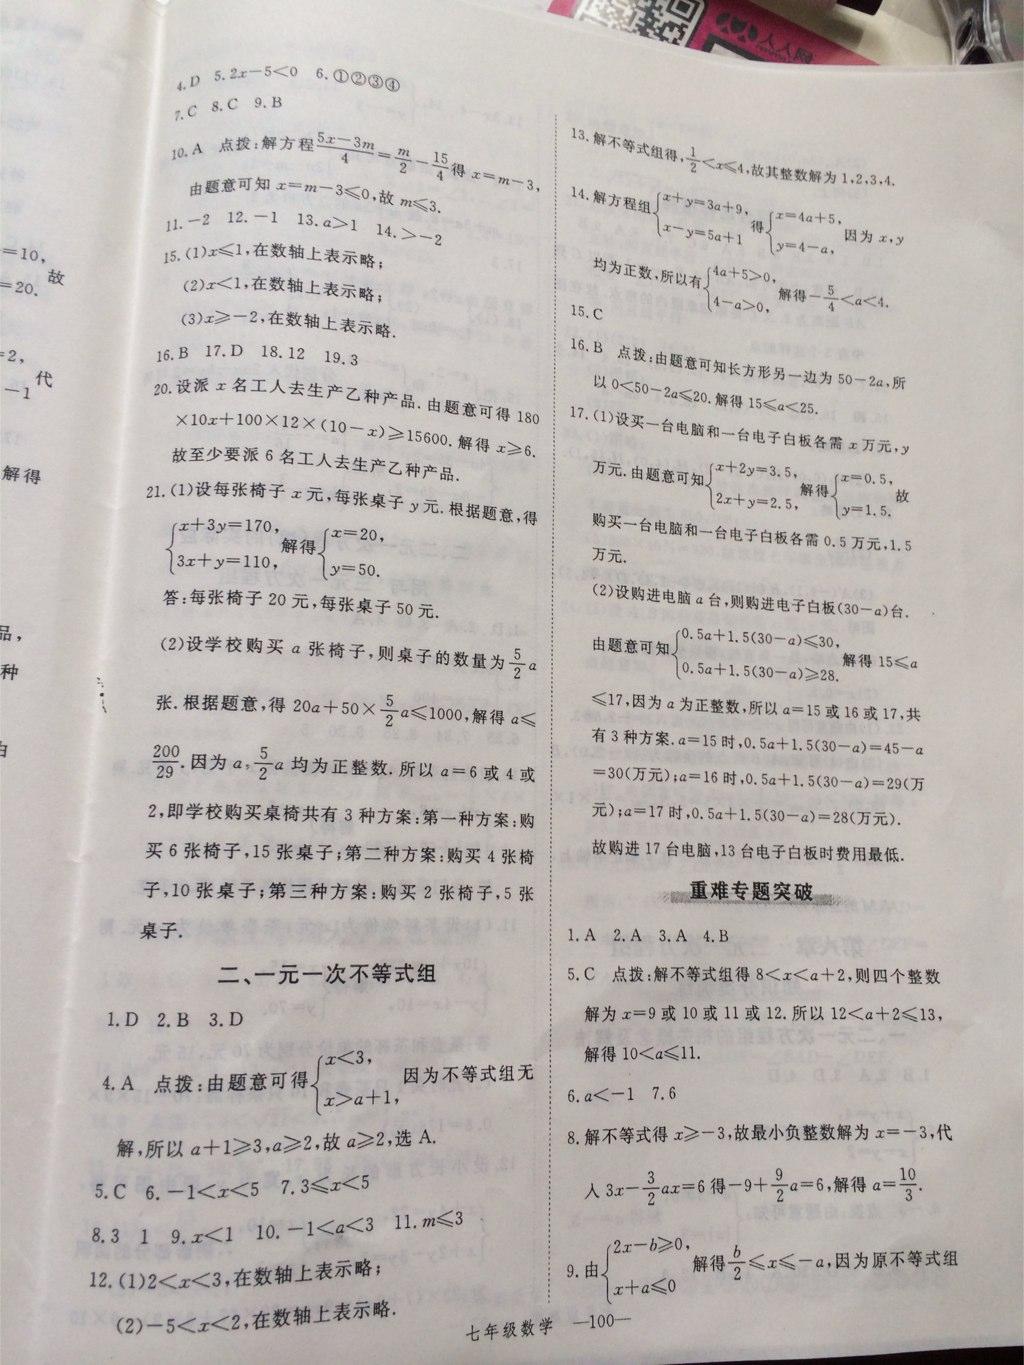 人人网
=10,
故
=20.
=2,
代
-1
解得
品,
种
4.D 5.2x-5<0 6.①②③④
7.C 8.C 9.B
10.A 点拨:解方程(5x-3m)/4=m/2-15/4得 x=m-3,
由题意可知 x=m-3≤0,故 m≤3.
11.-2 12.-1 13.a>1 14.>-2
15.(1)x≤1,在数轴上表示略;
(2)x<1,在数轴上表示略;
(3)x≥-2,在数轴上表示略.
16.B 17.D 18.12 19.3
20.设派 x 名工人去生产乙种产品.由题意可得 180
×10x+100×12×(10-x)≥15600.解得 x≥6.
故至少要派 6 名工人去生产乙种产品.
21.(1)设每张椅子 x 元,每张桌子 y 元.根据题意,得
{x+3y=170, 3x+y=110, 解得{x=20, y=50.
答:每张椅子 20 元,每张桌子 50 元.
(2)设学校购买 a 张椅子,则桌子的数量为5/2a
张.根据题意,得 20a+50×5/2a≤1000,解得 a≤
200/29.因为 a,5/2a 均为正整数.所以 a=6 或 4 或
2,即学校购买桌椅共有 3 种方案:第一种方案:购
买 6 张椅子,15 张桌子;第二种方案:购买 4 张椅
子,10 张桌子;第三种方案:购买 2 张椅子,5 张
桌子.
二、一元一次不等式组
1.D 2.B 3.D
4.A 点拨:由题意可得{x<3, x>a+1, 因为不等式组无
解,所以 a+1≥3,a≥2,故 a≥2,选 A.
5.C 6.-1<x<5 7.3≤x<5
8.3 1 9.x<1 10.-1<a<3 11.m≤3
12.(1)2<x<3,在数轴上表示略;
(2)-5<x<2,在数轴上表示略.
13.解不等式组得,1/2<x≤4,故其整数解为 1,2,3,4.
14.解方程组{x+y=3a+9, x-y=5a+1 得{x=4a+5, y=4-a, 因为 x,y
均为正数,所以有{4a+5>0, 4-a>0, 解得-5/4<a<4.
15.C
16.B 点拨:由题意可知长方形另一边为 50-2a,所
以 0<50-2a≤20.解得 15≤a<25.
17.(1)设买一台电脑和一台电子白板各需 x 万元,y
万元.由题意可知{x+2y=3.5, 2x+y=2.5, 解得{x=0.5, y=1.5. 故
购买一台电脑和一台电子白板各需 0.5 万元,1.5
万元.
(2)设购进电脑 a 台,则购进电子白板(30-a)台.
由题意可知{0.5a+1.5(30-a)≤30, 0.5a+1.5(30-a)≥28. 解得 15≤a
≤17,因为 a 为正整数,所以 a=15 或 16 或 17,共
有 3 种方案.a=15 时,0.5a+1.5(30-a)=45-a
=30(万元);a=16 时,0.5a+1.5(30-a)=29(万
元);a=17 时,0.5a+1.5(30-a)=28(万元).
故购进 17 台电脑,13 台电子白板时费用最低.
重难专题突破
1.A 2.A 3.A 4.B
5.C 点拨:解不等式组得 8<x<a+2,则四个整数
解为 x=9 或 10 或 11 或 12.所以 12<a+2≤13,
解得 10<a≤11.
6.a<-1 7.6
8.解不等式得 x≥-3,故最小负整数解为 x=-3,代
人 3x-3/2ax=6 得-9+9/2a=6,解得 a=10/3.
9.由{2x-b≥0, x+a≤0 解得b/2≤x≤-a,因为原不等式组
七年级数学 —100—